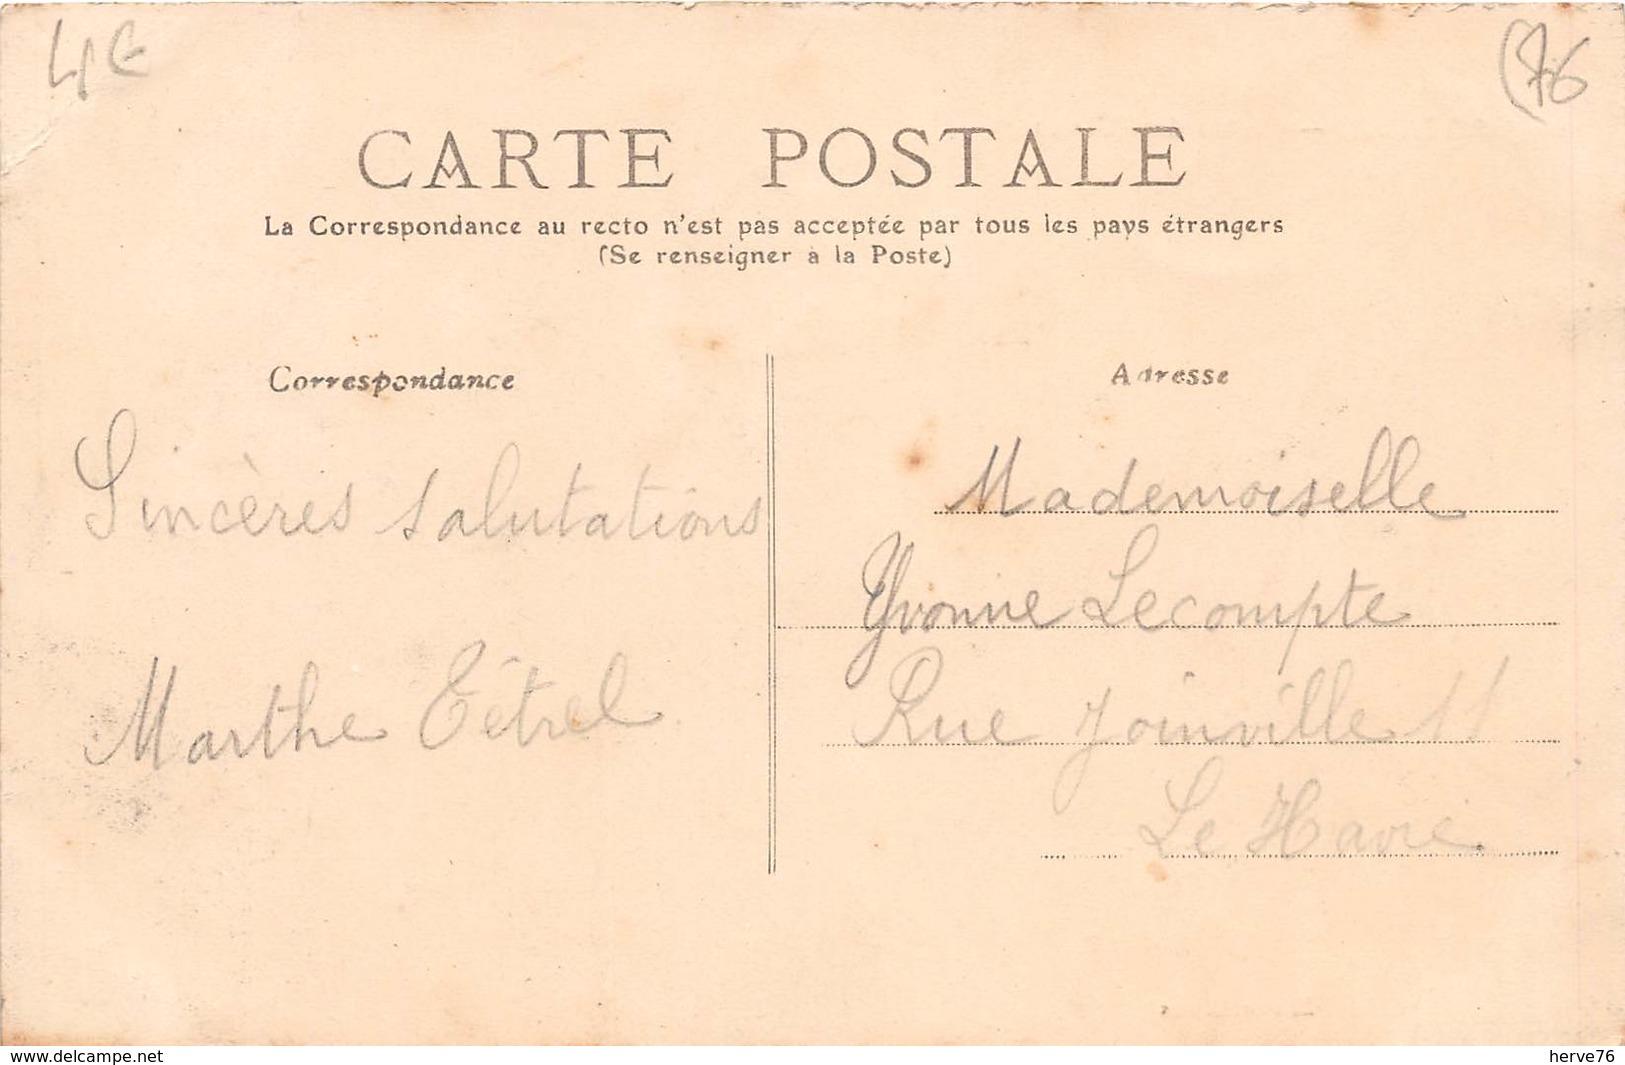 4€
(76
CARTE POSTALE
La Correspondance au recto n'est pas acceptée par tous les pays étrangers
(Se renseigner à la Poste)
Correspondance
Sincères salutations
Marthe
Adresse
Mademoiselle
Yvonne Lecompte
Rue Joinville 11
Le Havre
www.delcampe.net
herve76